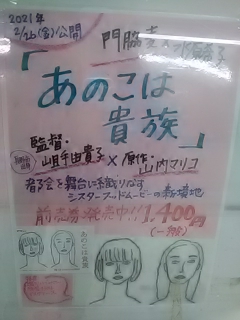 2021年
2/26(金)公開
門脇麦×水原希子
「あのこは
貴族」
監督・
岨手由貴子×原作・山内マリコ
都会を舞台に織りなす
シスターフッドムービーの新境地
前売券発売中!!1,400円
(一般)
あのこは貴族